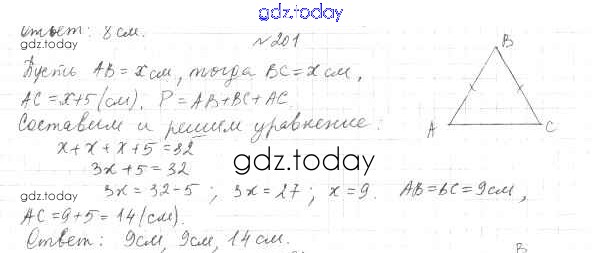 gdz.today
ответ: 8 см.
gdz.today
№ 201
Пусть AB = x см, тогда BC = x см,
AC = x+5 (см). P = AB+BC+AC.
Составим и решим уравнение:
x + x + x + 5 = 32
3x + 5 = 32
gdz.today
gdz.today
3x = 32-5 ; 3x = 27 ; x = 9. AB = BC = 9 см,
AC = 9 + 5 = 14 (см).
gdz.today
Ответ: 9 см, 9 см, 14 см.
B
A
C
B